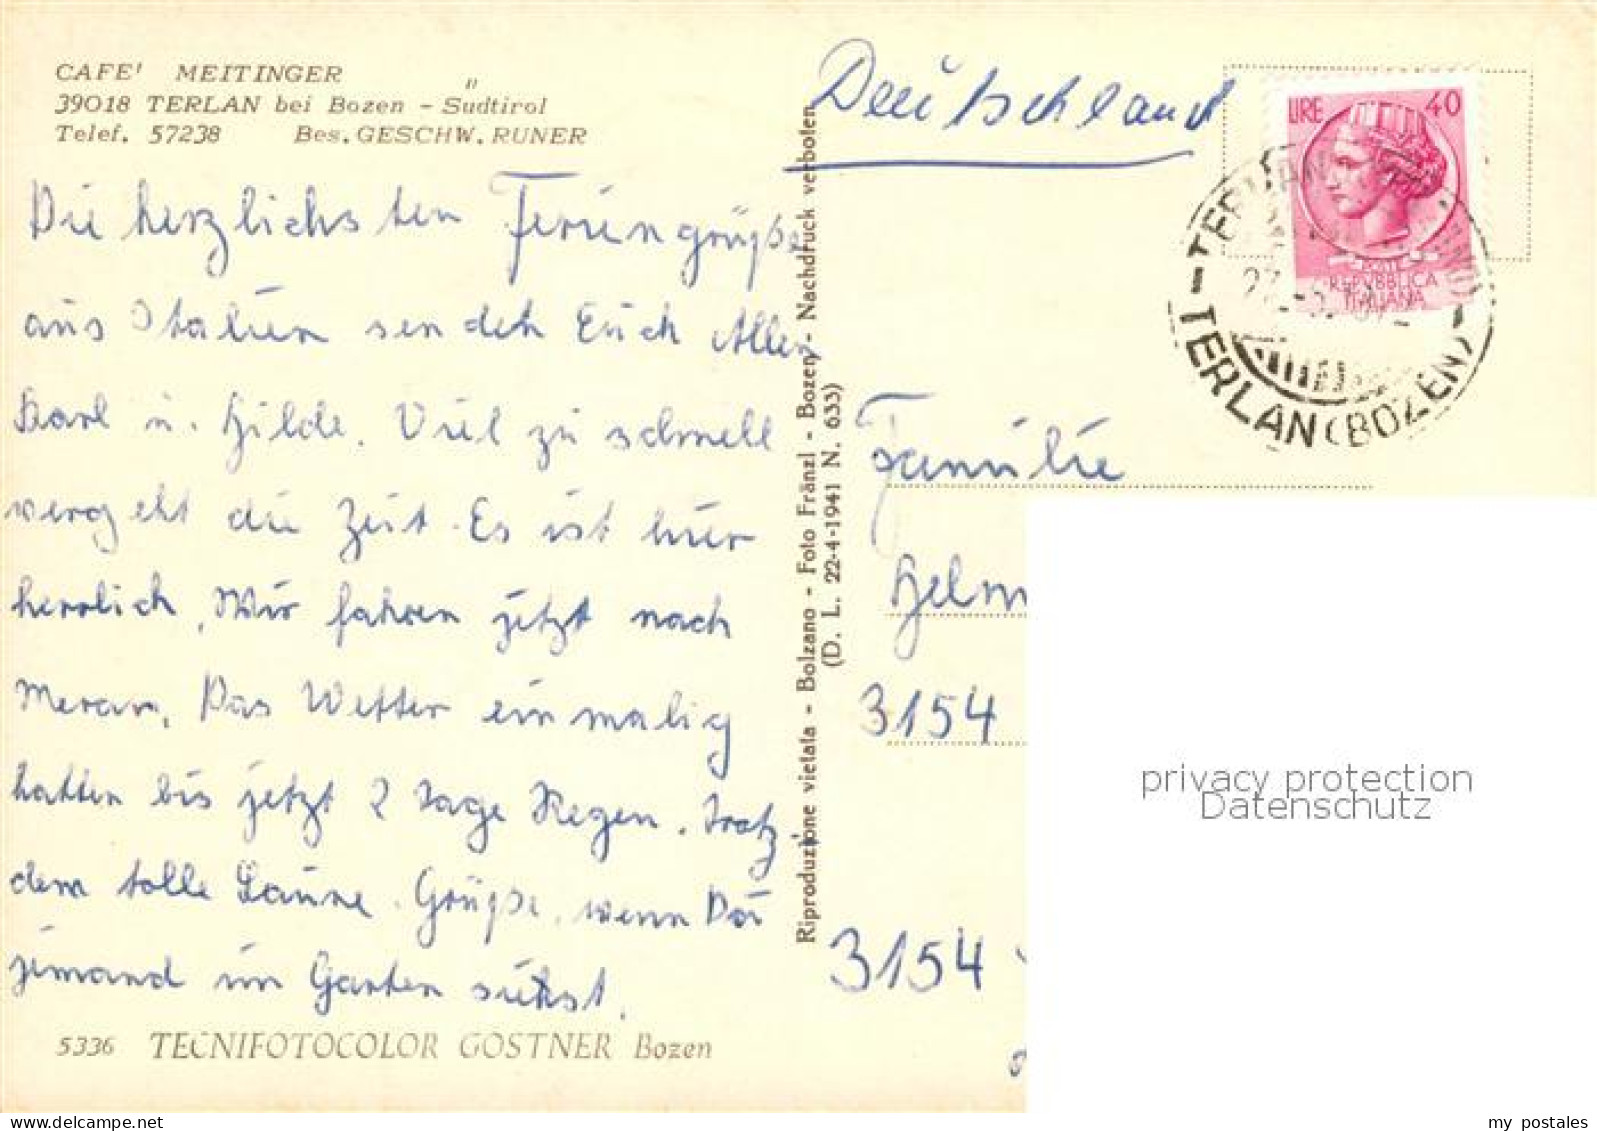 CAFE' MEITINGER
39018 TERLAN bei Bozen - Südtirol
Telef. 57238 Bes. GESCHW. RUNER
Die herzlichsten Feriengrüße
aus Italien senden Euch Allen
Karl u. Hilde. Viel zu schnell
vergeht die Zeit. Es ist hier
herrlich. Wir fahren jetzt nach
Meran. Das Wetter einmalig
hatten bis jetzt 2 Tage Regen. Trotz
dem tolle Laune. Grüße, wenn Du
jemand im Garten siehst.
5336 TECNIFOTOCOLOR GOSTNER Bozen
Riproduzione vietata - Bolzano - Foto Fränzl - Bozen - Nachdruck verboten
(D. L. 22-4-1941 N. 633)
Deutschland
LIRE 40
POSTE
REPVBBLICA
ITALIANA
TERLANO
TERLAN (BOZEN)
Familie
Helm
3154
3154
privacy protection
Datenschutz
my postales